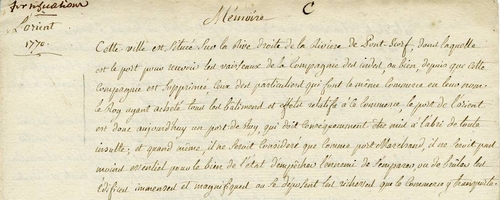 fortifications
Mémoire C
L'orient
1770.
Cette ville est située sur la rive droite de la riviere de Pont-Scorf, dans laquelle
est le port pour recevoir les vaisseaux de la Compagnie des indes, ou bien, depuis que cette
Compagnie est supprimée, ceux des particuliers qui font le même Commerce en leur nom.
le Roy ayant acheté tous les batimens et effets relatifs à ce Commerce, le port de L'orient
est donc aujourd'huy un port de Roy, qui doit consequemment être mis à l'abri de toute
insulte; et quand même, il ne seroit consideré que comme port Marchand, il ne seroit pas
moins essentiel pour le bien de l'état d'empêcher l'ennemi de s'emparer, ou de bruler les
édifices immenses et magnifiques ou se déposent les richesses que le Commerce y transporte